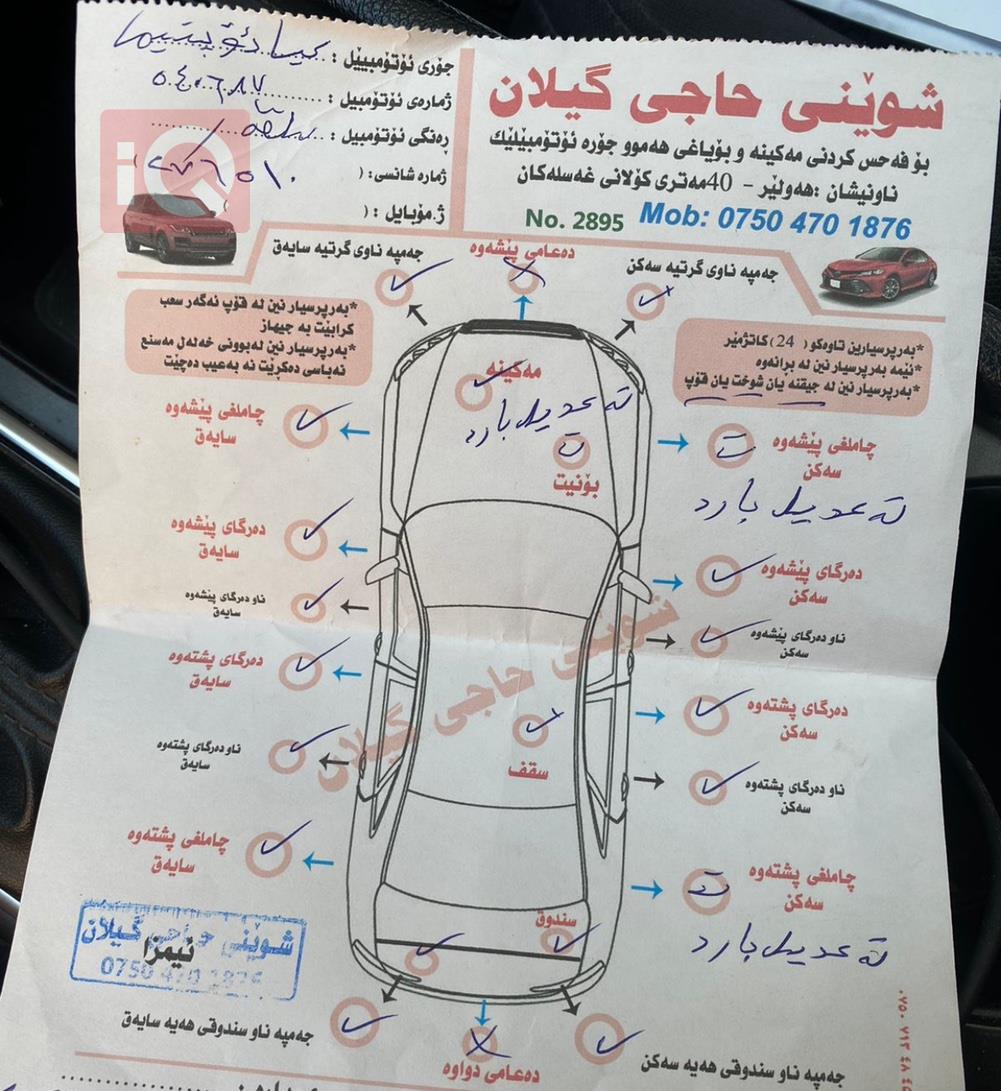 شوێنی حاجی گیلان
بۆ فەحس کردنی مەکینە و بۆیاغی هەموو جۆرە ئۆتۆمبێلێك
ناونیشان :هەولێر - 40مەتری کۆلانی غەسلەکان
No. 2895 Mob: 0750 470 1876
جۆری ئۆتۆمبیێل : کیا ئۆپتیما
ژمارەی ئۆتۆمبیل :
ڕەنگی ئۆتۆمبیل :
ژمارە شانسی: (
ژ.مۆبایل : (
iQ
جەمپە ناوی گرتیە سایەق
دەعامی پێشەوە
جەمپە ناوی گرتیە سەکن
*بەرپرسیار نین لە قۆپ ئەگەر سعب
کرابێت بە جیهاز
*بەرپرسیار نین لەبوونی خەلەل مەسنع
ئەباسی دەکرێت نە بەعیب دەچێت
*بەرپرسیارین تاوەکو ( 24 )کاتژمێر
*ئێمە بەرپرسیار نین لە برانەوە
*بەرپرسیار نین لە جیقنە یان شوخت یان قۆپ
مەکینە
تە عدیل بارد
ت
بۆنیت
چاملغی پێشەوە
سایەق
چاملغی پێشەوە
سەکن
ت
تە عدیل بارد
دەرگای پێشەوە
سایەق
دەرگای پێشەوە
سەکن
ناو دەرگای پێشەوە
سایەق
ناو دەرگای پێشەوە
سەکن
شوێنی حاجی گیلان
دەرگای پشتەوە
سایەق
دەرگای پشتەوە
سەکن
ناو دەرگای پشتەوە
سایەق
سقف
ناو دەرگای پشتەوە
سەکن
چاملغی پشتەوە
سایەق
چاملغی پشتەوە
سەکن
ت
تە عدیل بارد
سندوق
شوێنی حاجی گیلان
ئیمزا
0750 470 1876
جەمپە ناو سندوقی هەیە سایەق
دەعامی دواوە
جەمپە ناو سندوقی هەیە سەکن